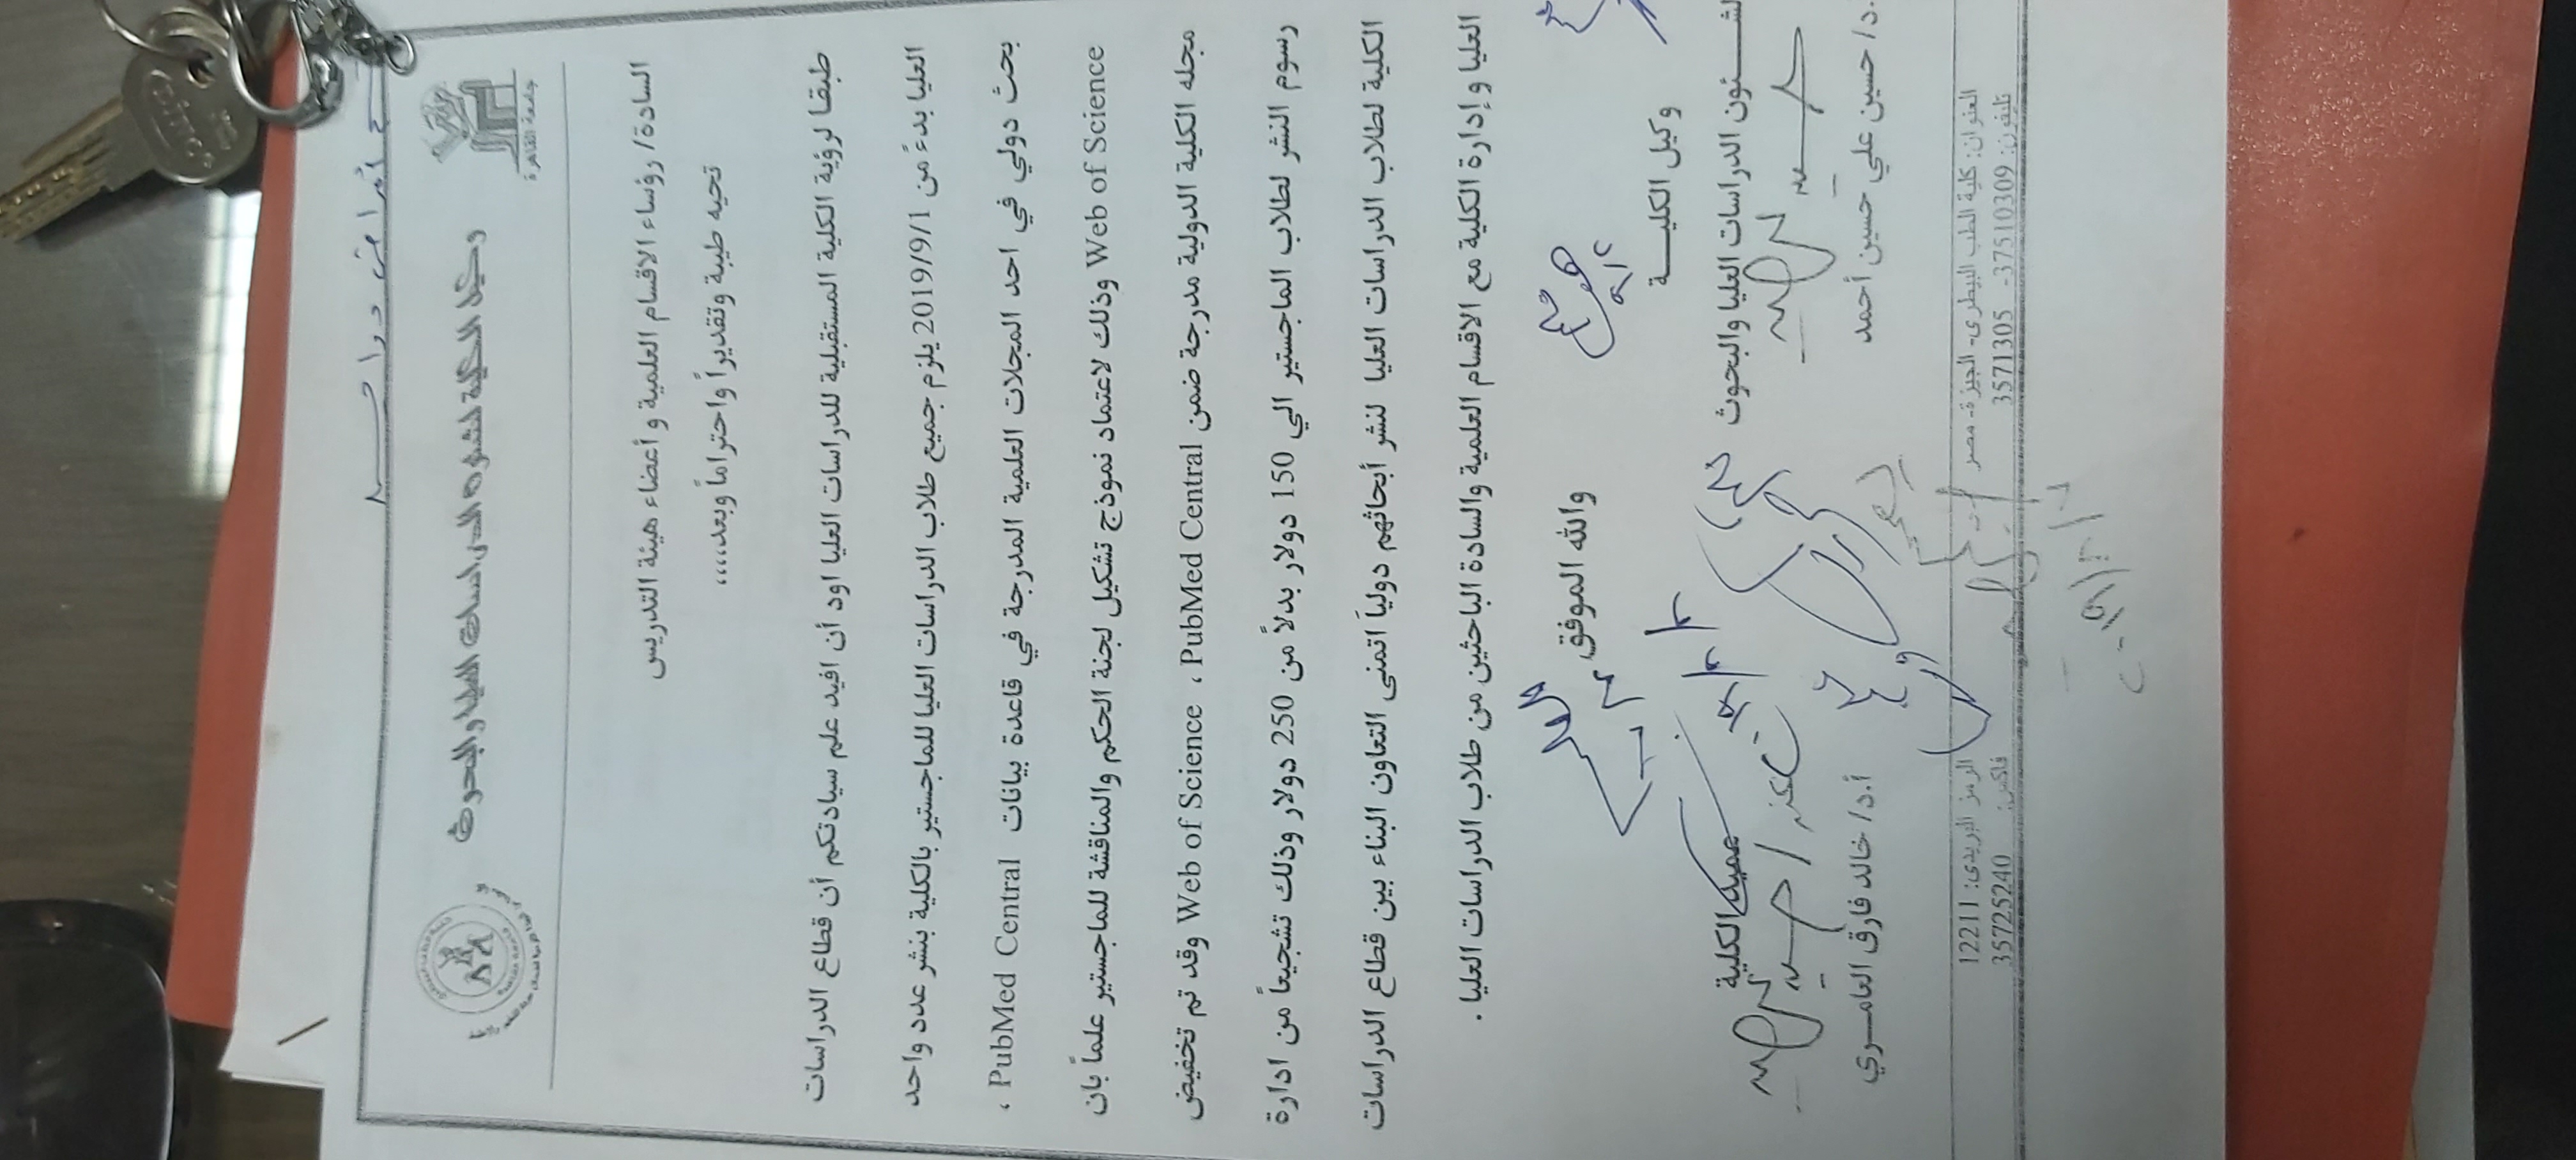 وكيل الكلية لشئون الدراسات العليا والبحوث
جامعة القاهرة
السادة/ رؤساء الاقسام العلمية و أعضاء هيئة التدريس
تحيه طيبة وتقديراً واحتراماً وبعد،،،،
طبقا لرؤية الكلية المستقبلية للدراسات العليا اود أن افيد علم سيادتكم أن قطاع الدراسات
العليا بدءً من 2019/9/1 يلزم جميع طلاب الدراسات العليا للماجستير بالكلية بنشر عدد واحد
بحث دولي في احد المجلات العلمية المدرجة في قاعدة بيانات PubMed Central ،
Web of Science وذلك لاعتماد نموذج تشكيل لجنة الحكم والمناقشة للماجستير علماً بان
مجله الكلية الدولية مدرجة ضمن Web of Science ، PubMed Central وقد تم تخفيض
رسوم النشر لطلاب الماجستير الي 150 دولار بدلاً من 250 دولار وذلك تشجيعاً من ادارة
الكلية لطلاب الدراسات العليا لنشر أبحاثهم دولياً اتمنى التعاون البناء بين قطاع الدراسات
العليا وإدارة الكلية مع الاقسام العلمية والسادة الباحثين من طلاب الدراسات العليا .
والله الموفق
وكيل الكليـــة
لشـــئون الدراسات العليا والبحوث
عميد الكلية
أ.د/ حسين علي حسين أحمد
أ.د/ خالد فاروق العامـــري
العنوان: كلية الطب البيطرى- الجيزة- مصر
الرمز البريدى: 12211
تليفون: 37510309- 3571305
فاكس: 35725240